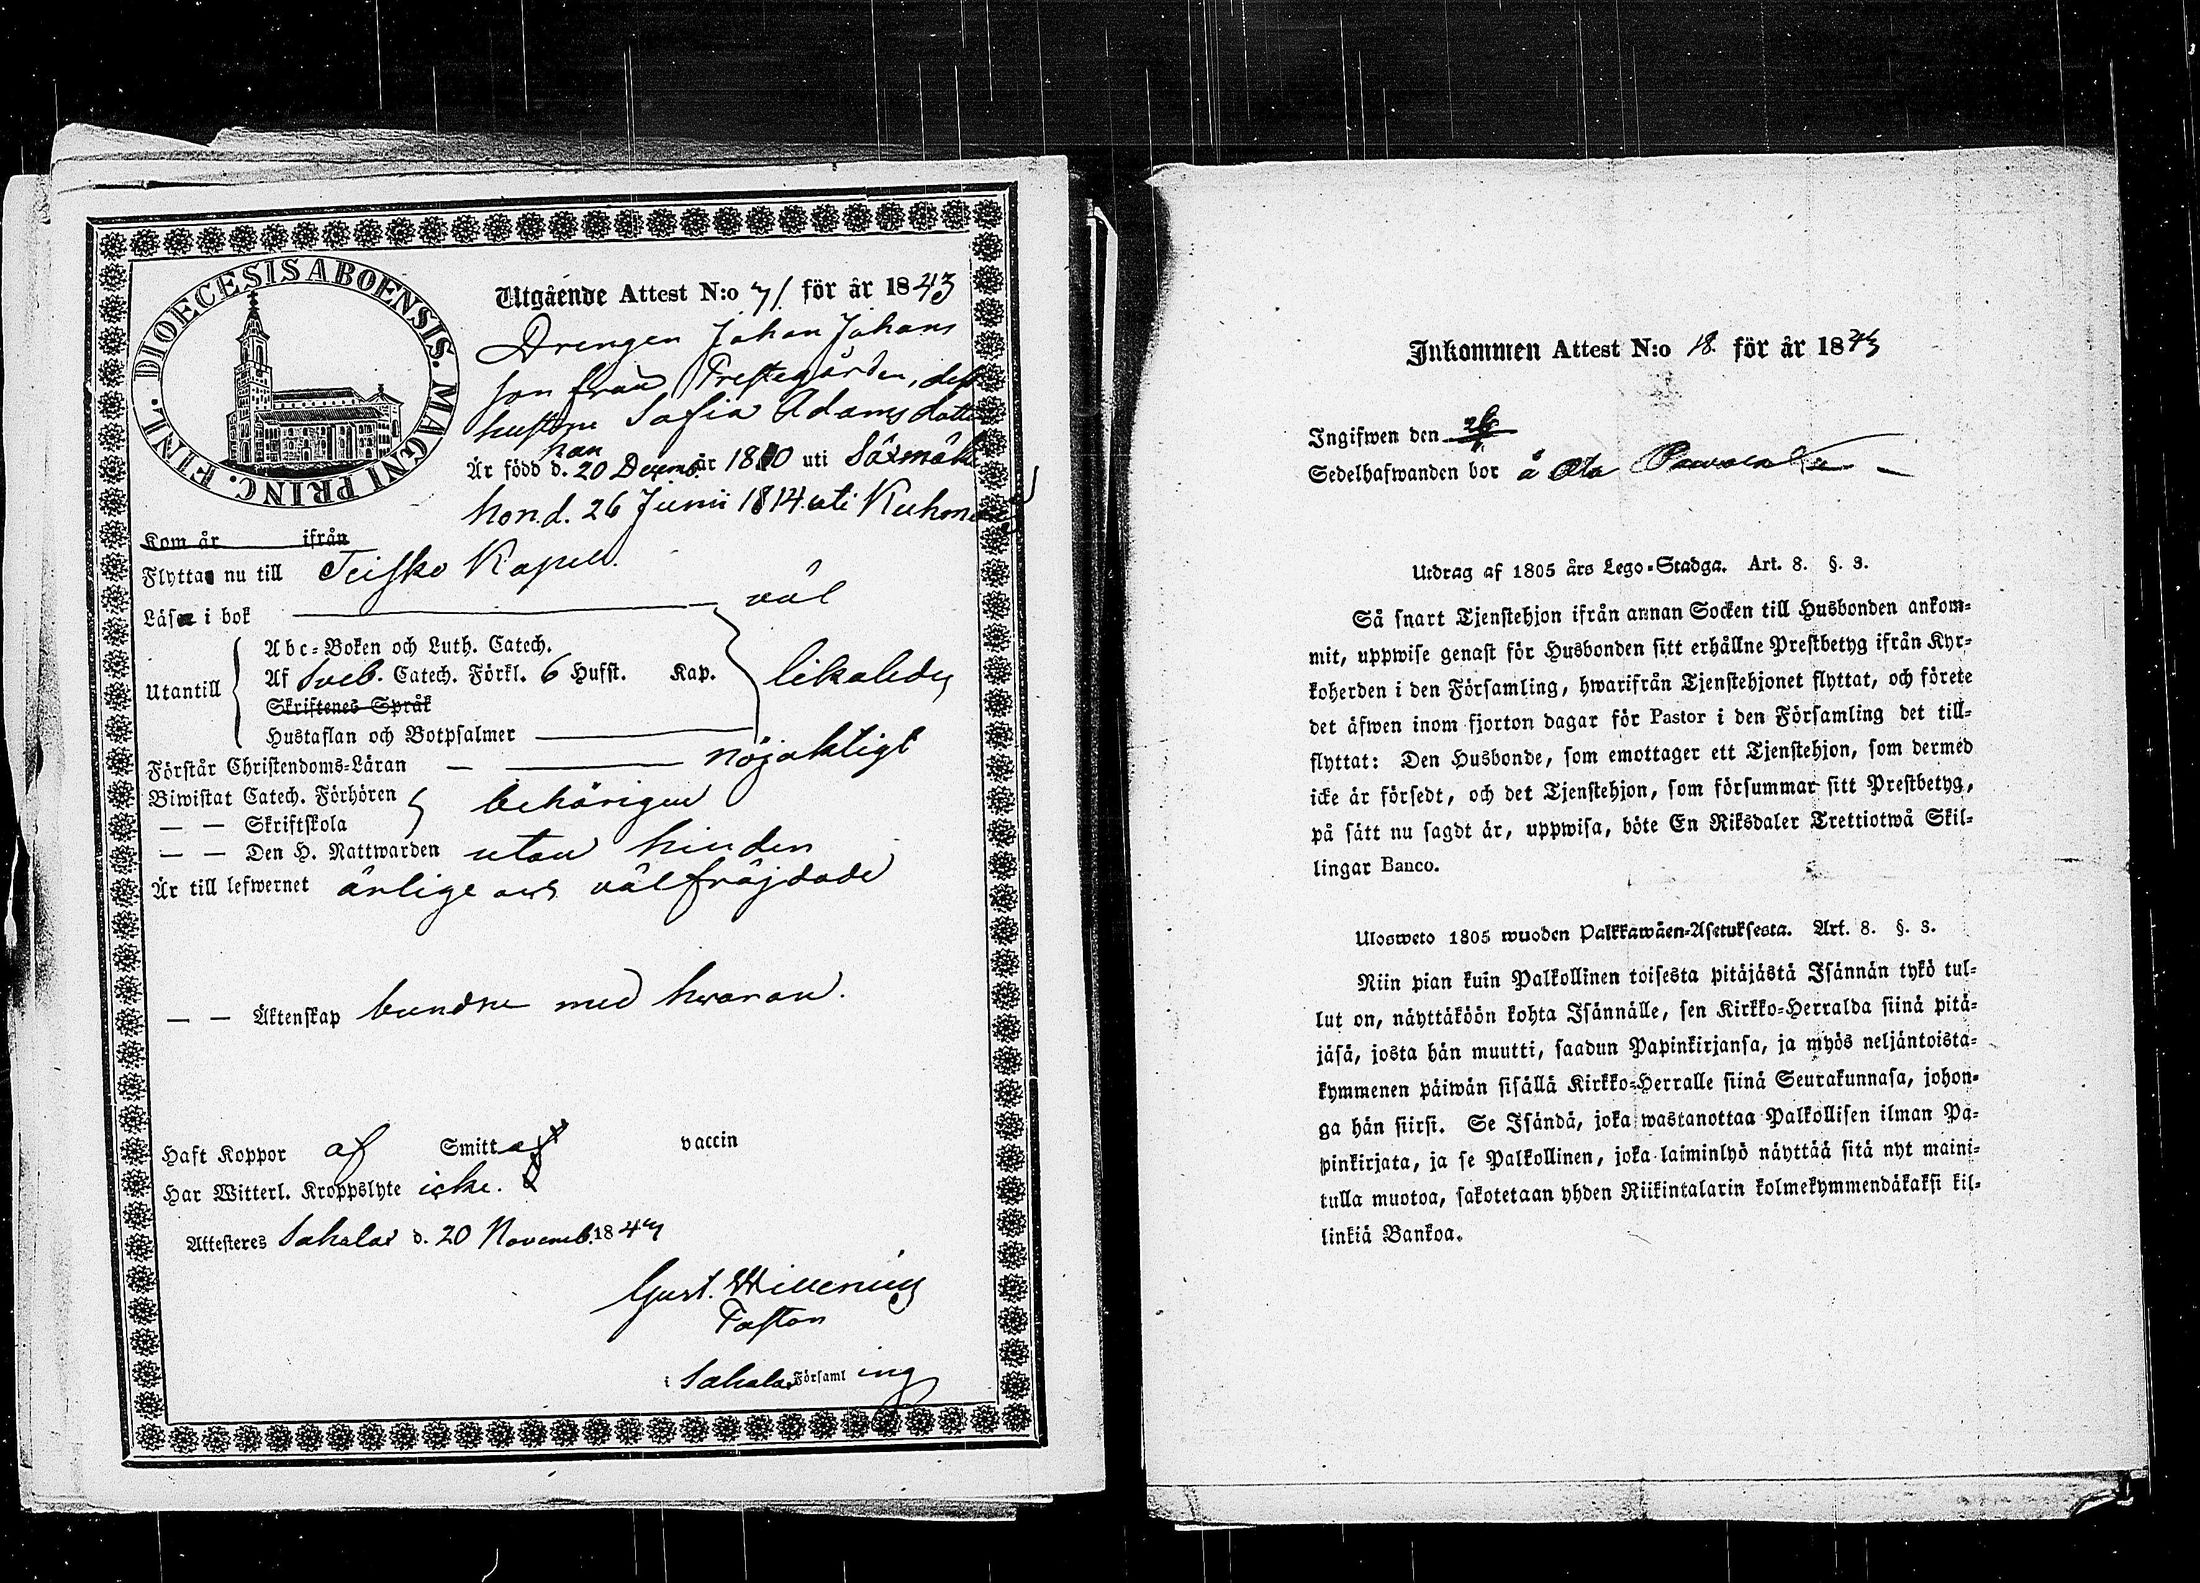 DIOECESIS ABOENSIS. MAGNI PRINC. FINL.
Utgående Attest N:o 71. för år 1843
Drengen Johan Johans
son från Prestegården, dess
hustru Sofia Adamsdotter
han
Är född d. 20 Decemb. år 1810 uti Säxmäki
hon d. 26 Junii 1814 uti
Kom år ifrån
Flyttas nu till Teisko Kapell.
Läser i bok väl
Utantill
Abc-Boken och Luth. Catech.
Af Sveb. Catech. Förkl. 6 Hufst. Kap. likaledes
Skriftenes Språk
Hustaflan och Botpsalmer
Förstår Christendoms-Läran nöjaktigt
Biwistat Catech. Förhören behörigen
— — Skriftskola
— — Den H. Nattwarden utan hinder
Är till lefwernet ärlige och välfräjdade
— — Äktenskap bundne med hvaran.
Haft Koppor af Smitt vaccin
Har Witterl. Kroppslyte icke.
Attesteres Sahalax d. 20 Novemb. 1843
Gust. Willenius
Pastor
i Sahalax Församling
Inkommen Attest N:o 18. för år 1843
Ingifwen den
Sedelhafwanden bor å Ala
Utdrag af 1805 års Lego-Stadga. Art. 8. §. 3.
Så snart Tjenstehjon ifrån annan Socken till Husbonden ankom-
mit, uppwise genast för Husbonden sitt erhållne Prestbetyg ifrån Kyr-
koherden i den Församling, hwarifrån Tjenstehjonet flyttat, och förete
det äfwen inom fjorton dagar för Pastor i den Församling det till-
flyttat: Den Husbonde, som emottager ett Tjenstehjon, som dermed
icke är försedt, och det Tjenstehjon, som försummar sitt Prestbetyg,
på sätt nu sagdt är, uppwisa, böte En Riksdaler Trettiotwå Skil-
lingar Banco.
Ulosweto 1805 wuoden Palkkawäen-Asetuksesta. Art. 8. §. 3.
Niin pian kuin Palkollinen toisesta pitäjästä Isännän tykö tul-
lut on, näyttäköön kohta Isännälle, sen Kirkko-Herralda siinä pitä-
jäsä, josta hän muutti, saadun Papinkirjansa, ja myös neljäntoista-
kymmenen päiwän sisällä Kirkko-Herralle siinä Seurakunnasa, johon-
ga hän siirsi. Se Isändä, joka wastanottaa Palkollisen ilman Pa-
pinkirjata, ja se Palkollinen, joka laiminlyö näyttää sitä nyt maini-
tulla muotoa, sakotetaan yhden Riikintalarin kolmekymmendäkaksi kil-
linkiä Bankoa.